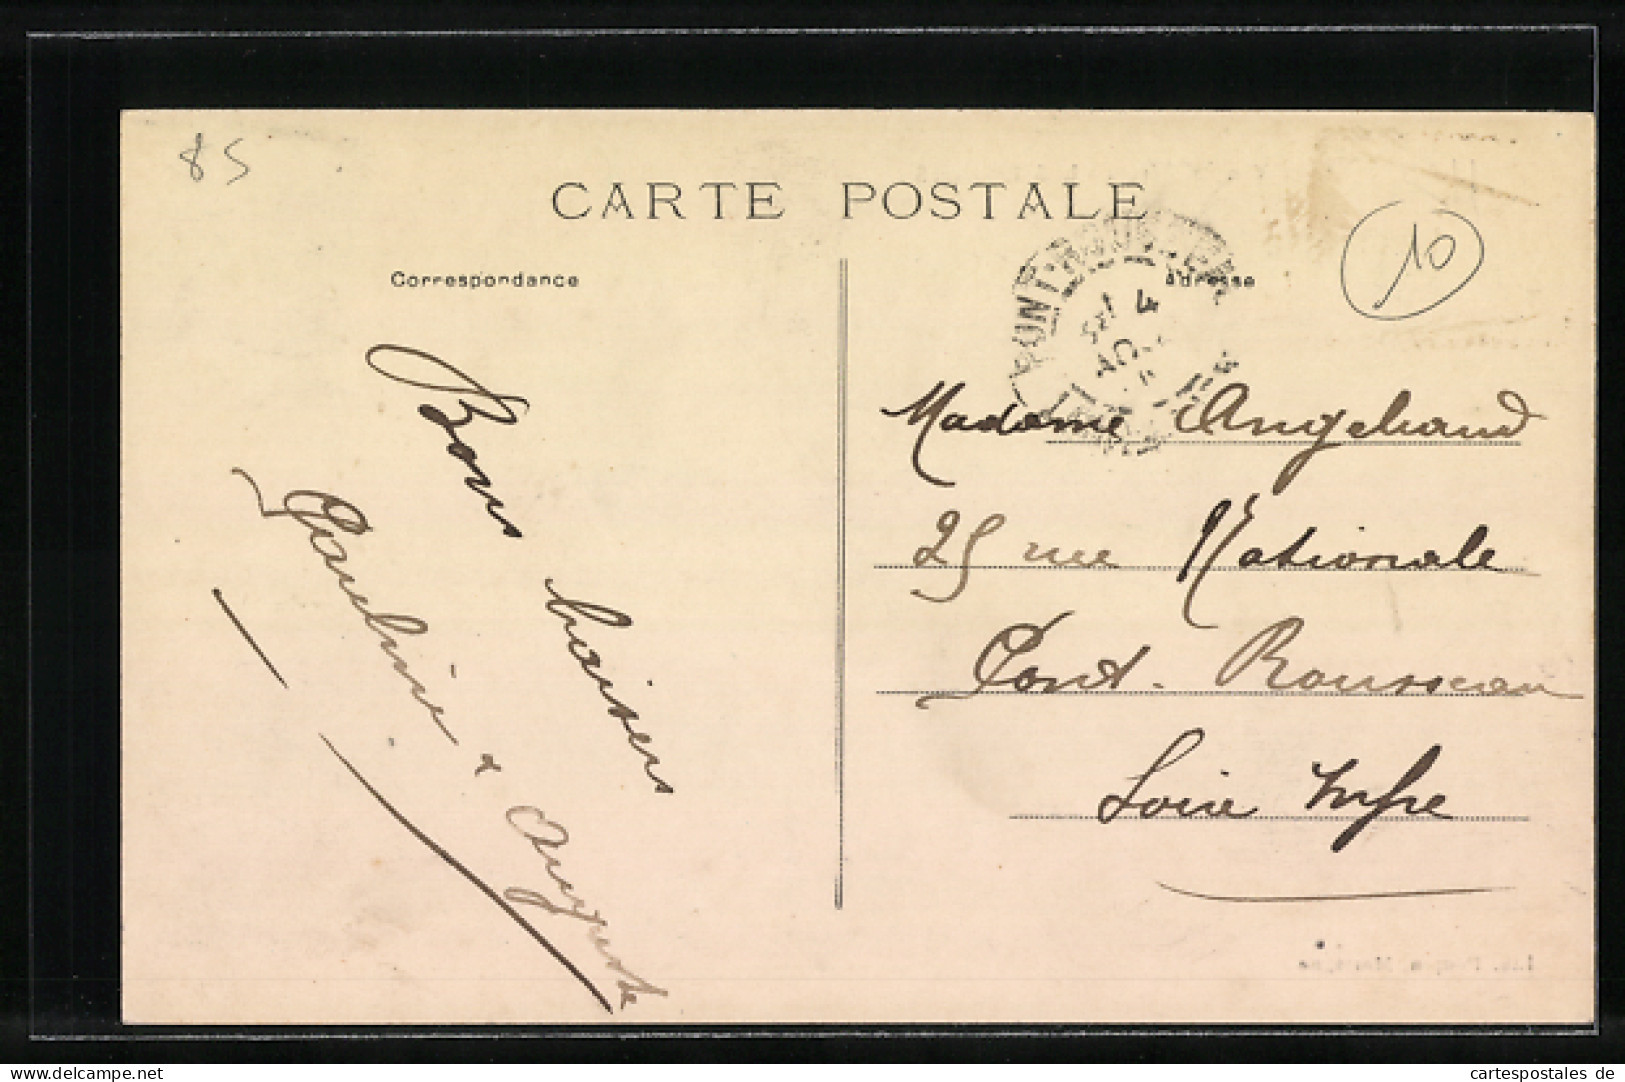 85
CARTE POSTALE
10
Correspondance
adresse
4
Bons baisers
Gambier & Auguste
Madame Angebaud
25 rue Nationale
Pont-Rousseau
Loire Infre
cartespostales de